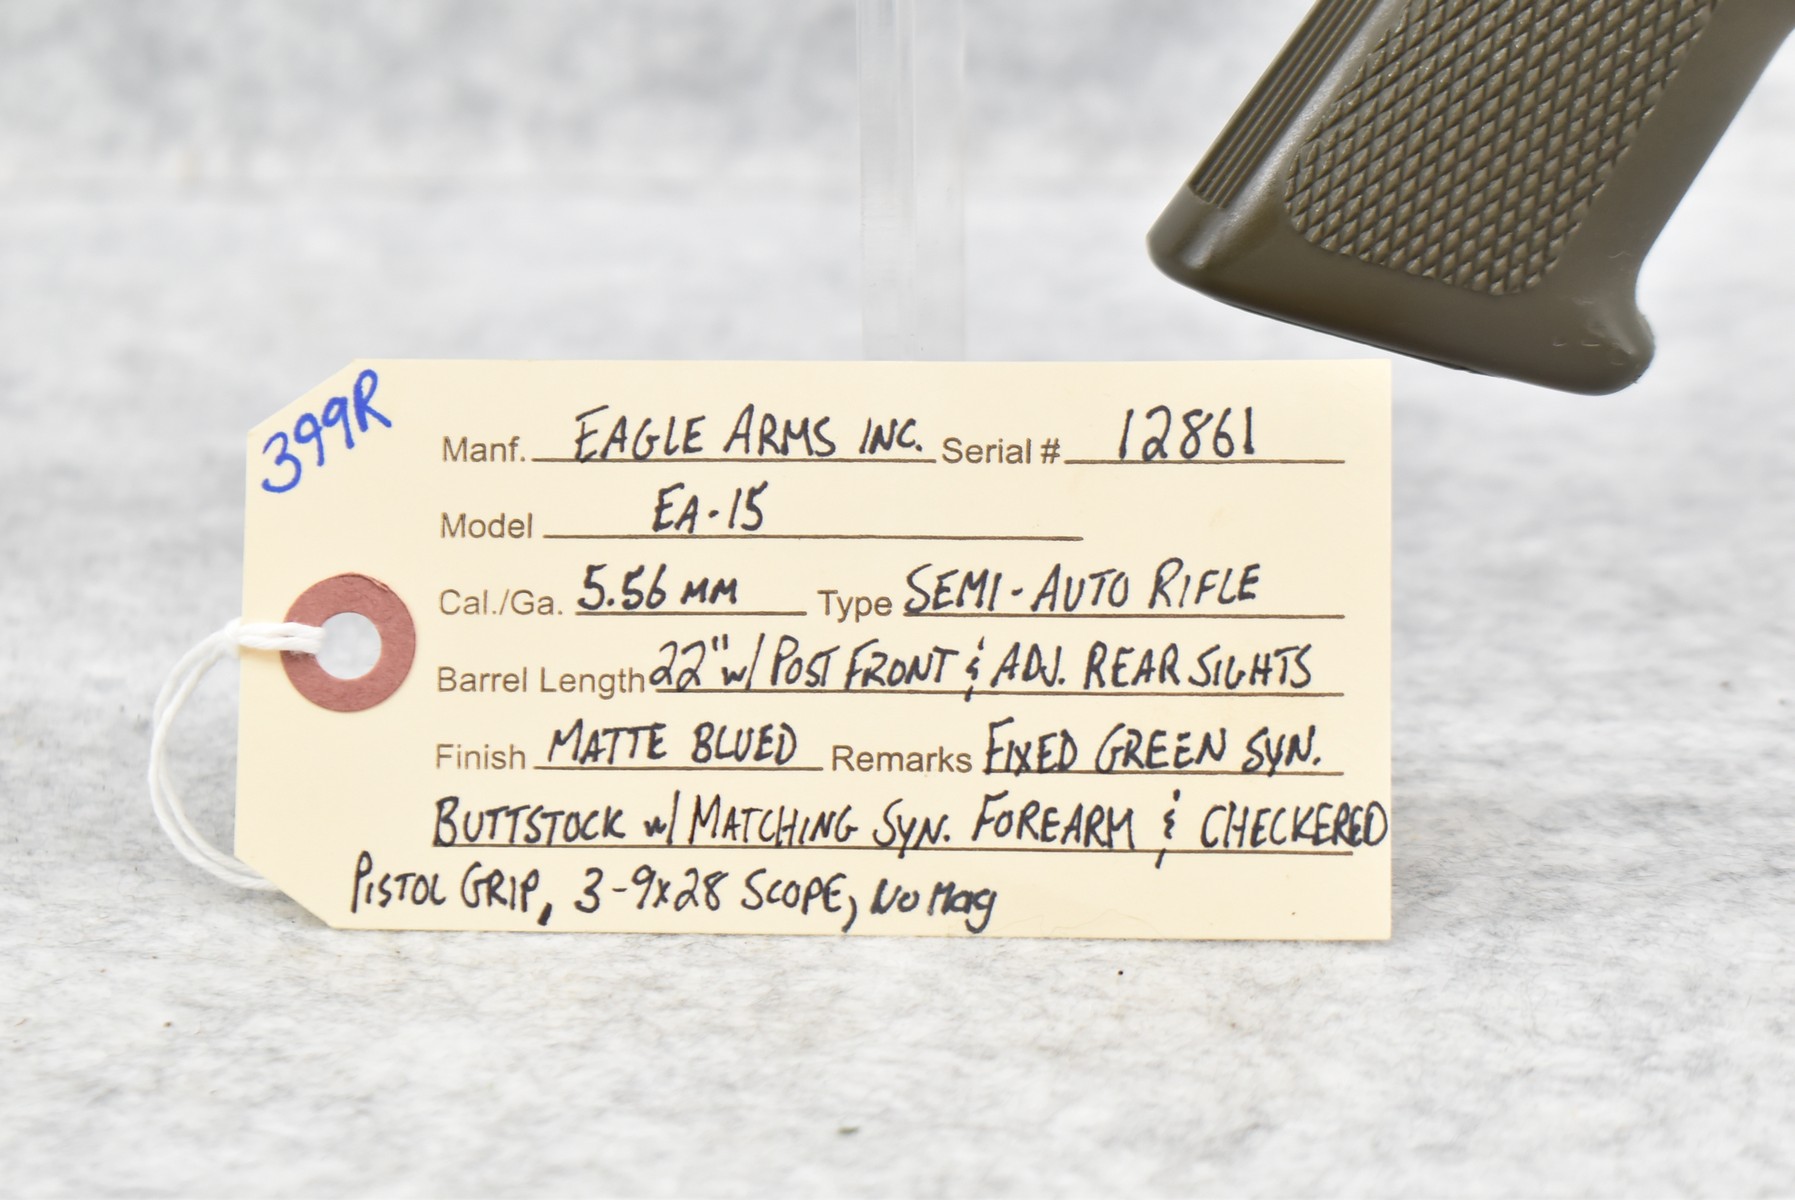 399R
Manf. EAGLE ARMS INC. Serial # 12861
Model EA-15
Cal./Ga. 5.56 MM Type SEMI-AUTO RIFLE
Barrel Length 22" w/ POST FRONT & ADJ. REAR SIGHTS
Finish MATTE BLUED Remarks FIXED GREEN SYN.
BUTTSTOCK w/ MATCHING SYN. FOREARM & CHECKERED
PISTOL GRIP, 3-9x28 SCOPE, No Mag